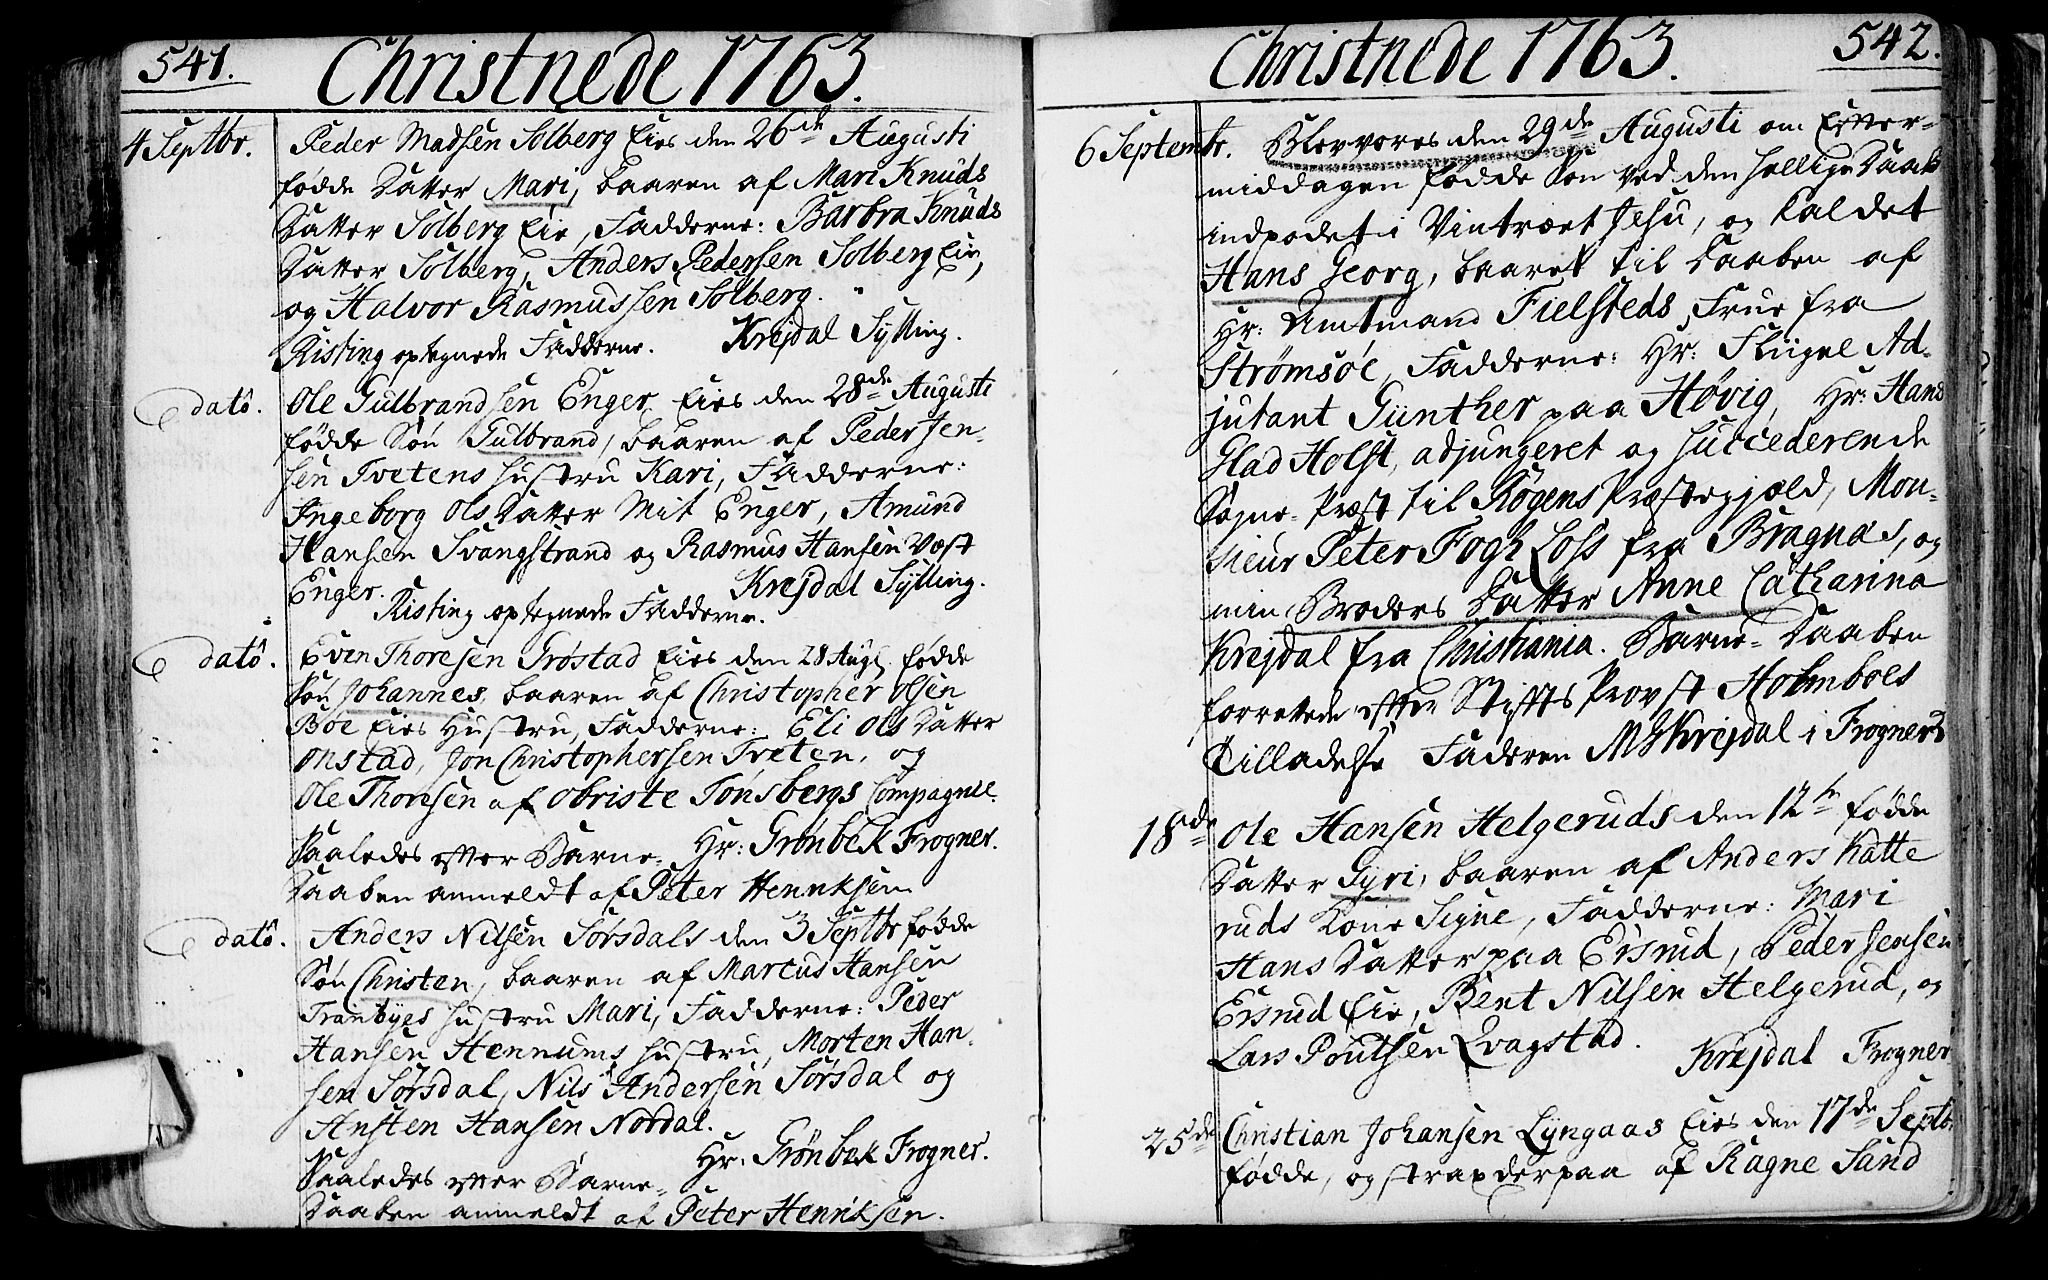 541.
Christnede 1763.
4 Septbr. Peder Madsen Solberg Eies den 26de Augusti
fødde Datter Mari, baaren af Mari Knuds
Datter Solberg Eie, Fadderne: Barbra Knuds
Datter Solberg, Anders Pedersen Solberg Eie,
og Halvor Rasmussen Solberg.
Risting optegnede Fadderne. Krejdal Sylling.
dato. Ole Gulbrandsen Enger Eies den 28de Augusti
fødde Søn Gulbrand, baaren af Peder Jen-
sen Tvetens Hustru Kari, Fadderne:
Ingeborg Ols Datter Mit Enger, Amund
Hansen Svangstrand og Rasmus Hansen Vest
Enger. Krejdal Sylling.
Risting optegnede Fadderne.
dato. Even Thoresen Grøstad Eies den 28 Aug. fødde
Søn Johannes, baaren af Christopher Olsen
Bøe Eies Hustru, Fadderne: Eli Ols Datter
Onstad, Jon Christophersen Tveten, og
Ole Thoresen af Obriste Tønsbergs Compagnie.
Saaledes efter Barne- Hr: Grønbek Frogner.
Daaben anmeldt af Peter Henriksen
dato. Anders Nilsen Sørsdals den 3 Septbr fødde
Søn Christen, baaren af Marcus Hansen
Tranbyes Hustru Mari, Fadderne: Peder
Hansen Hennums Hustru, Morten Han-
sen Sørsdal, Nils Andersen Sørsdal og
Ansten Hansen Nordal.
Hr: Grønbek Frogner.
Saaledes efter Barne-
Daaben anmeldt af Peter Henriksen.
Christnede 1763.
542.
6 Septembr. Blev vores den 29de Augusti om Efter-
middagen fødde Søn ved den hellige Daab
indpodet i Vintræet Jesu, og kaldet
Hans Georg, baaret til Daaben af
Hr: Amtmand Fielsteds Frue fra
Strømsøe, Fadderne: Hr: Flügel Ad-
jutant Günther paa Høvig, Hr: Hans
Glad Holst, adjungeret og succederende
Sogne-Præst til Røgens Præstegjæld, Mon-
sieur Peter Fogh Loss fra Bragnæs, og
min Broders Datter Anne Catharina
Krejdal fra Christiania. Barne-Daaben
forrettede efter Stifts Provst Holmboes
Tilladelse Faderen MG Krejdal i Frogner
18de Ole Hansen Helgeruds den 12te fødde
Datter Gyri, baaren af Anders Katte
ruds Kone Signe, Fadderne: Mari
Hans Datter paa Ersrud, Peder Jensen
Ersrud Eie, Bent Nilsen Helgerud, og
Lars Poulsen Qvagstad.
Krejdal Frogner
25de Christian Johansen Lyngaas Eies den 17de Septbr
fødde, og strax derpaa af Ragne Sand